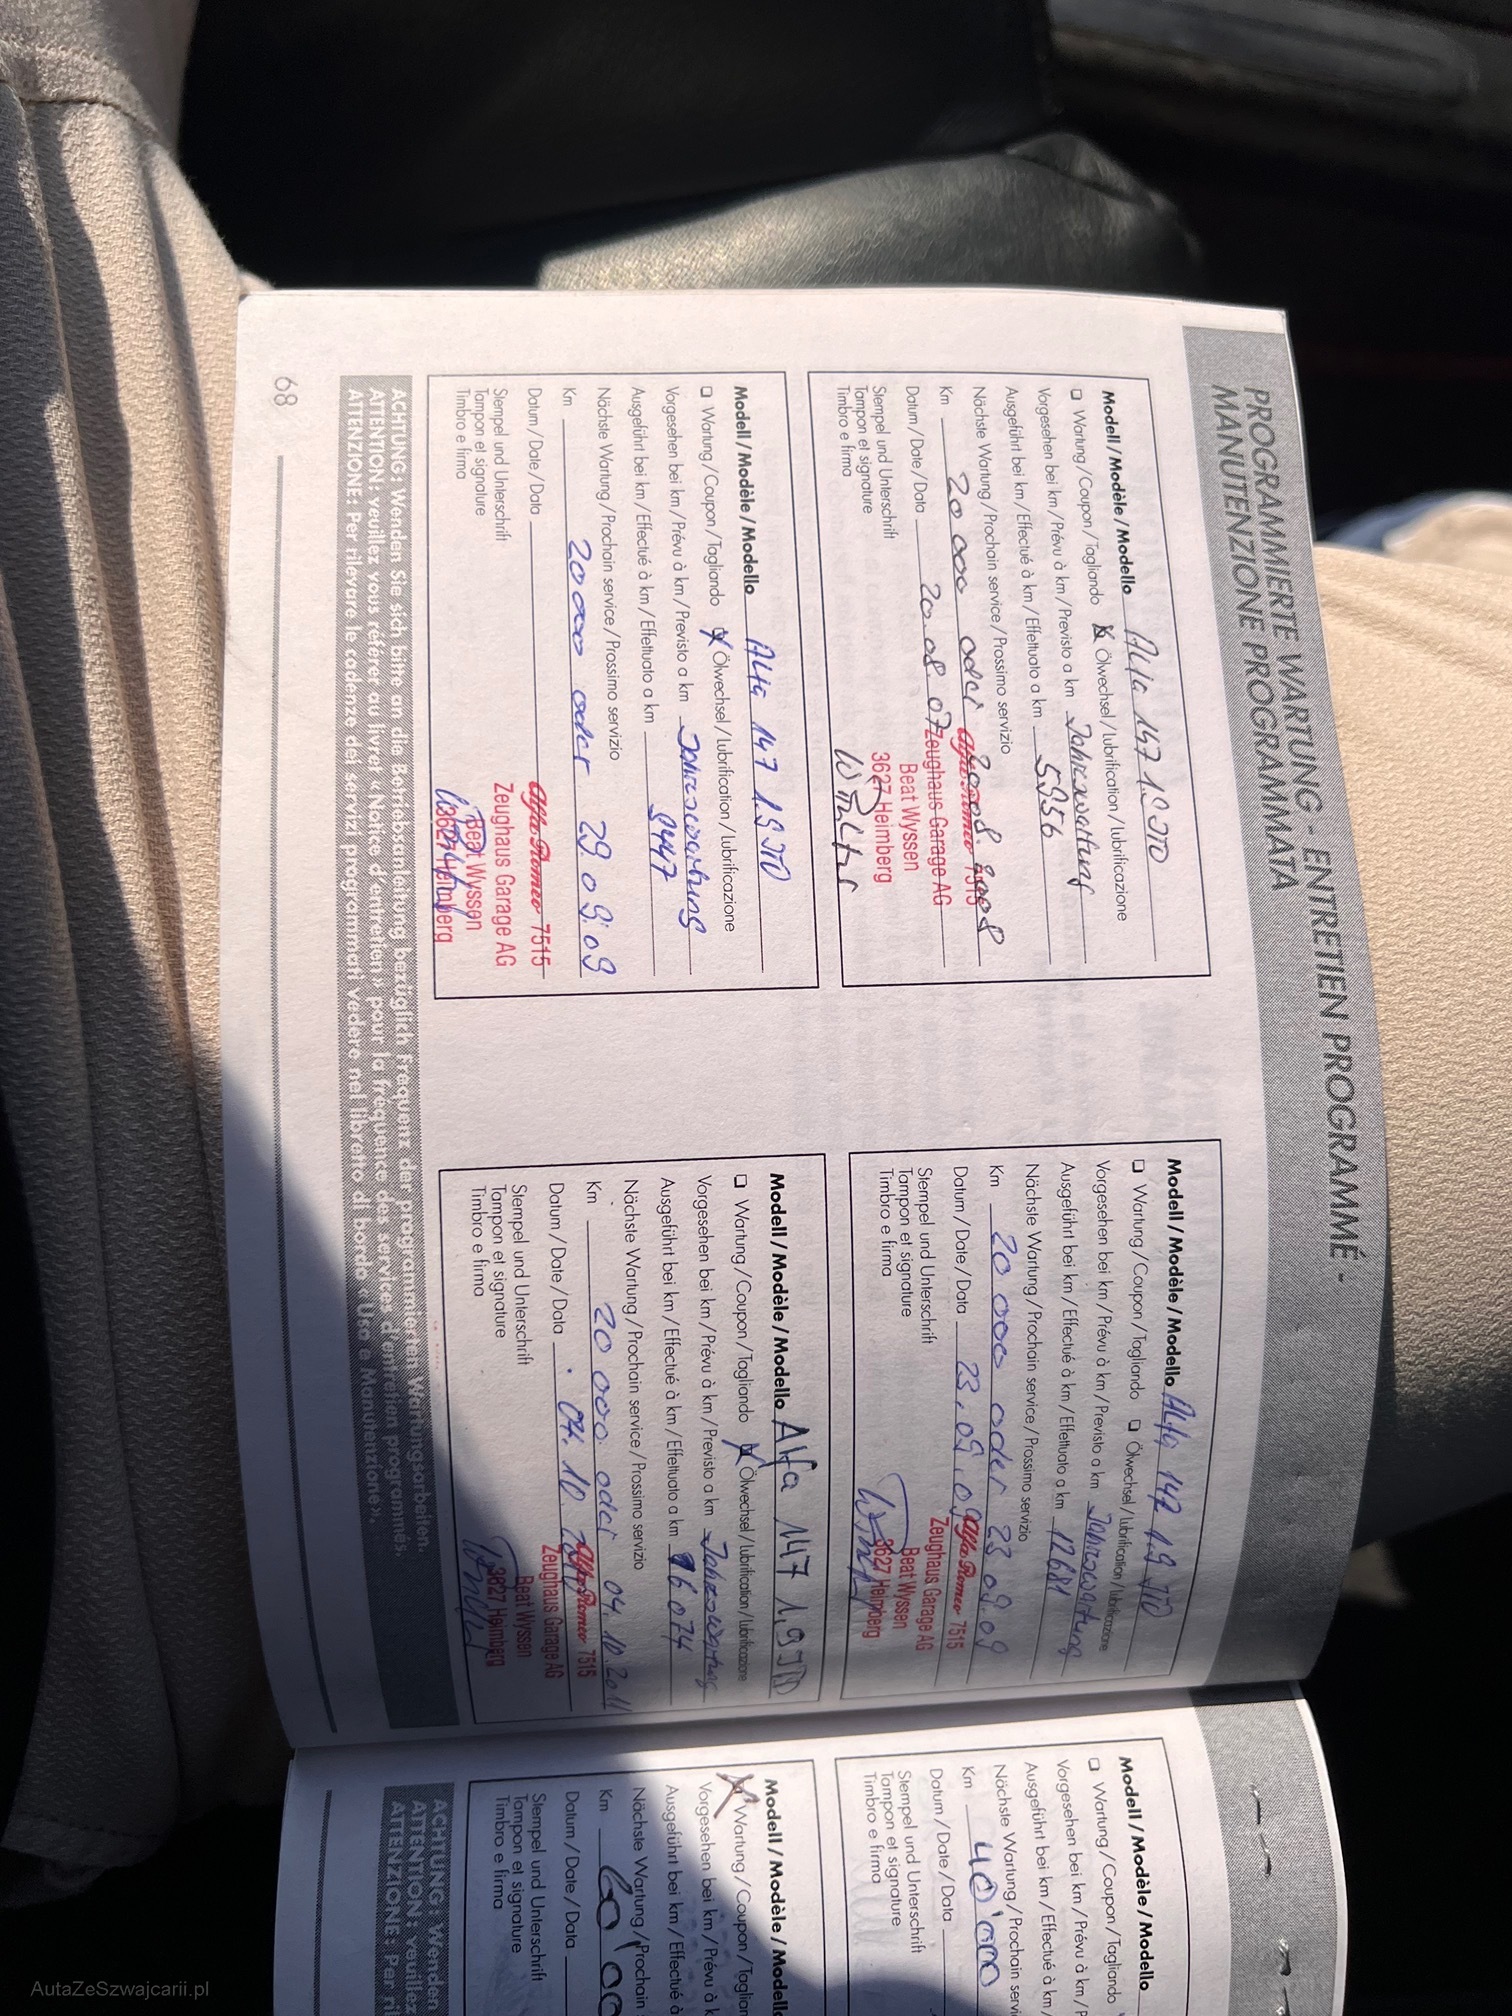 PROGRAMMIERTE WARTUNG - ENTRETIEN PROGRAMMÉ -
MANUTENZIONE PROGRAMMATA
Modell / Modèle / Modello Alfa 147 1.9 JTD
❑ Wartung / Coupon / Tagliando ❑ Ölwechsel / lubrification / lubrificazione
Vorgesehen bei km / Prévu à km / Previsto a km Jahreswartung
Ausgeführt bei km / Effectué à km / Effettuato a km 5956
Nächste Wartung / Prochain service / Prossimo servizio
Km 20 000 oder
Datum / Date / Data 20.08.07
Stempel und Unterschrift
Tampon et signature
Timbro e firma
Alfa Romeo 7515
Zeughaus Garage AG
Beat Wyssen
3627 Heimberg
Modell / Modèle / Modello Alfa 147 1.9 JTD
❑ Wartung / Coupon / Tagliando ❑ Ölwechsel / lubrification / lubrificazione
Vorgesehen bei km / Prévu à km / Previsto a km Jahreswartung
Ausgeführt bei km / Effectué à km / Effettuato a km 12681
Nächste Wartung / Prochain service / Prossimo servizio
Km 20 000 oder 23.09.09
Datum / Date / Data 23.09.09
Stempel und Unterschrift
Tampon et signature
Timbro e firma
Alfa Romeo 7515
Zeughaus Garage AG
Beat Wyssen
3627 Heimberg
Modell / Modèle / Modello Alfa 147 1.9 JTD
❑ Wartung / Coupon / Tagliando ❑ Ölwechsel / lubrification / lubrificazione
Vorgesehen bei km / Prévu à km / Previsto a km Jahreswartung
Ausgeführt bei km / Effectué à km / Effettuato a km 9447
Nächste Wartung / Prochain service / Prossimo servizio
Km 20 000 oder 29.09.09
Datum / Date / Data
Stempel und Unterschrift
Tampon et signature
Timbro e firma
Alfa Romeo 7515
Zeughaus Garage AG
Beat Wyssen
3627 Heimberg
Modell / Modèle / Modello Alfa 147 1,9 JTD
❑ Wartung / Coupon / Tagliando ❑ Ölwechsel / lubrification / lubrificazione
Vorgesehen bei km / Prévu à km / Previsto a km Jahreswartung
Ausgeführt bei km / Effectué à km / Effettuato a km 16074
Nächste Wartung / Prochain service / Prossimo servizio
Km 20 000 oder 04.10.2011
Datum / Date / Data 04.10
Stempel und Unterschrift
Tampon et signature
Timbro e firma
Alfa Romeo 7515
Zeughaus Garage AG
Beat Wyssen
3627 Heimberg
ACHTUNG: Wenden Sie sich bitte an die Betriebsanleitung bezüglich Frequenz der programmierten Wartungsarbeiten.
ATTENTION: veuillez vous référer au livret «Notice d'entretien» pour la fréquence des services d'entretien programmés.
ATTENZIONE: Per rilevare le cadenze dei servizi programmati vedere nel libretto di bordo «Uso e Manutenzione».
68
Modell / Modèle / Modello
❑ Wartung / Coupon / Tagliando
Vorgesehen bei km / Prévu à km / P
Ausgeführt bei km / Effectué à km /
Nächste Wartung / Prochain servi
Km 40'000
Datum / Date / Data
Stempel und Unterschrift
Tampon et signature
Timbro e firma
Modell / Modèle / Modell
Wartung / Coupon / Taglian
Vorgesehen bei km / Prévu à k
Ausgeführt bei km / Effectué à
Nächste Wartung / Prochain
Km 60'00
Datum / Date / Data
Stempel und Unterschrift
Tampon et signature
Timbro e firma
ACHTUNG: Wenden
ATTENTION: veuillez
ATTENZIONE: Per ri
AutaZeSzwajcarii.pl